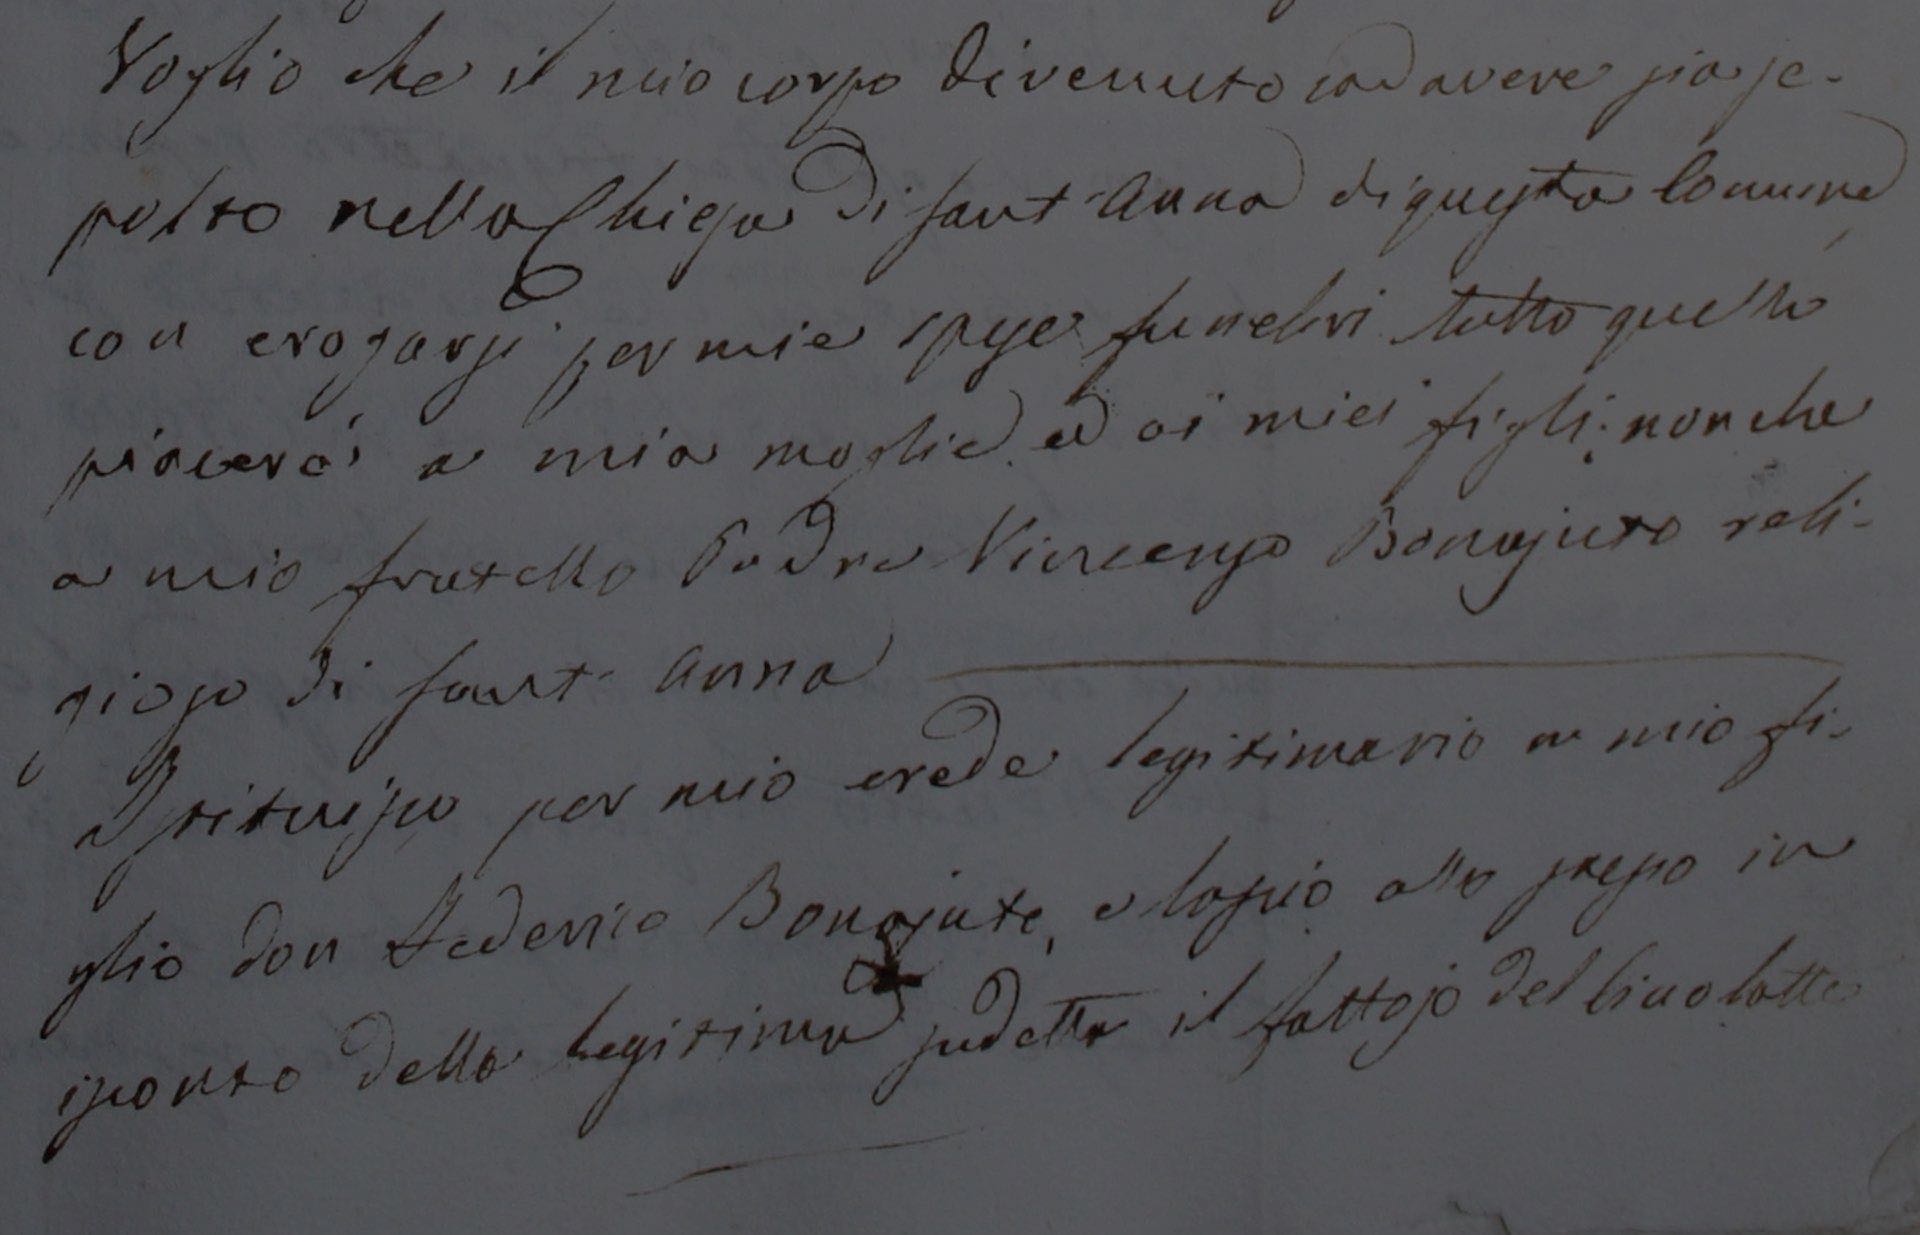 Voglio che il mio corpo divenuto cadavere sia se-
polto nella Chiesa di Sant'Anna di questa Comune
con erogarsi per mie spese funebri tutto quello
piacerà a mia moglie, ed ai miei figli; nonché
a mio fratello Padre Vincenzo Bonajuto reli-
gioso di Sant'Anna
Istituisco per mio erede legittimario a mio fi-
glio don Federico Bonajuto, e lascio allo stesso in
isconto della legitima sudetta il fattojo del